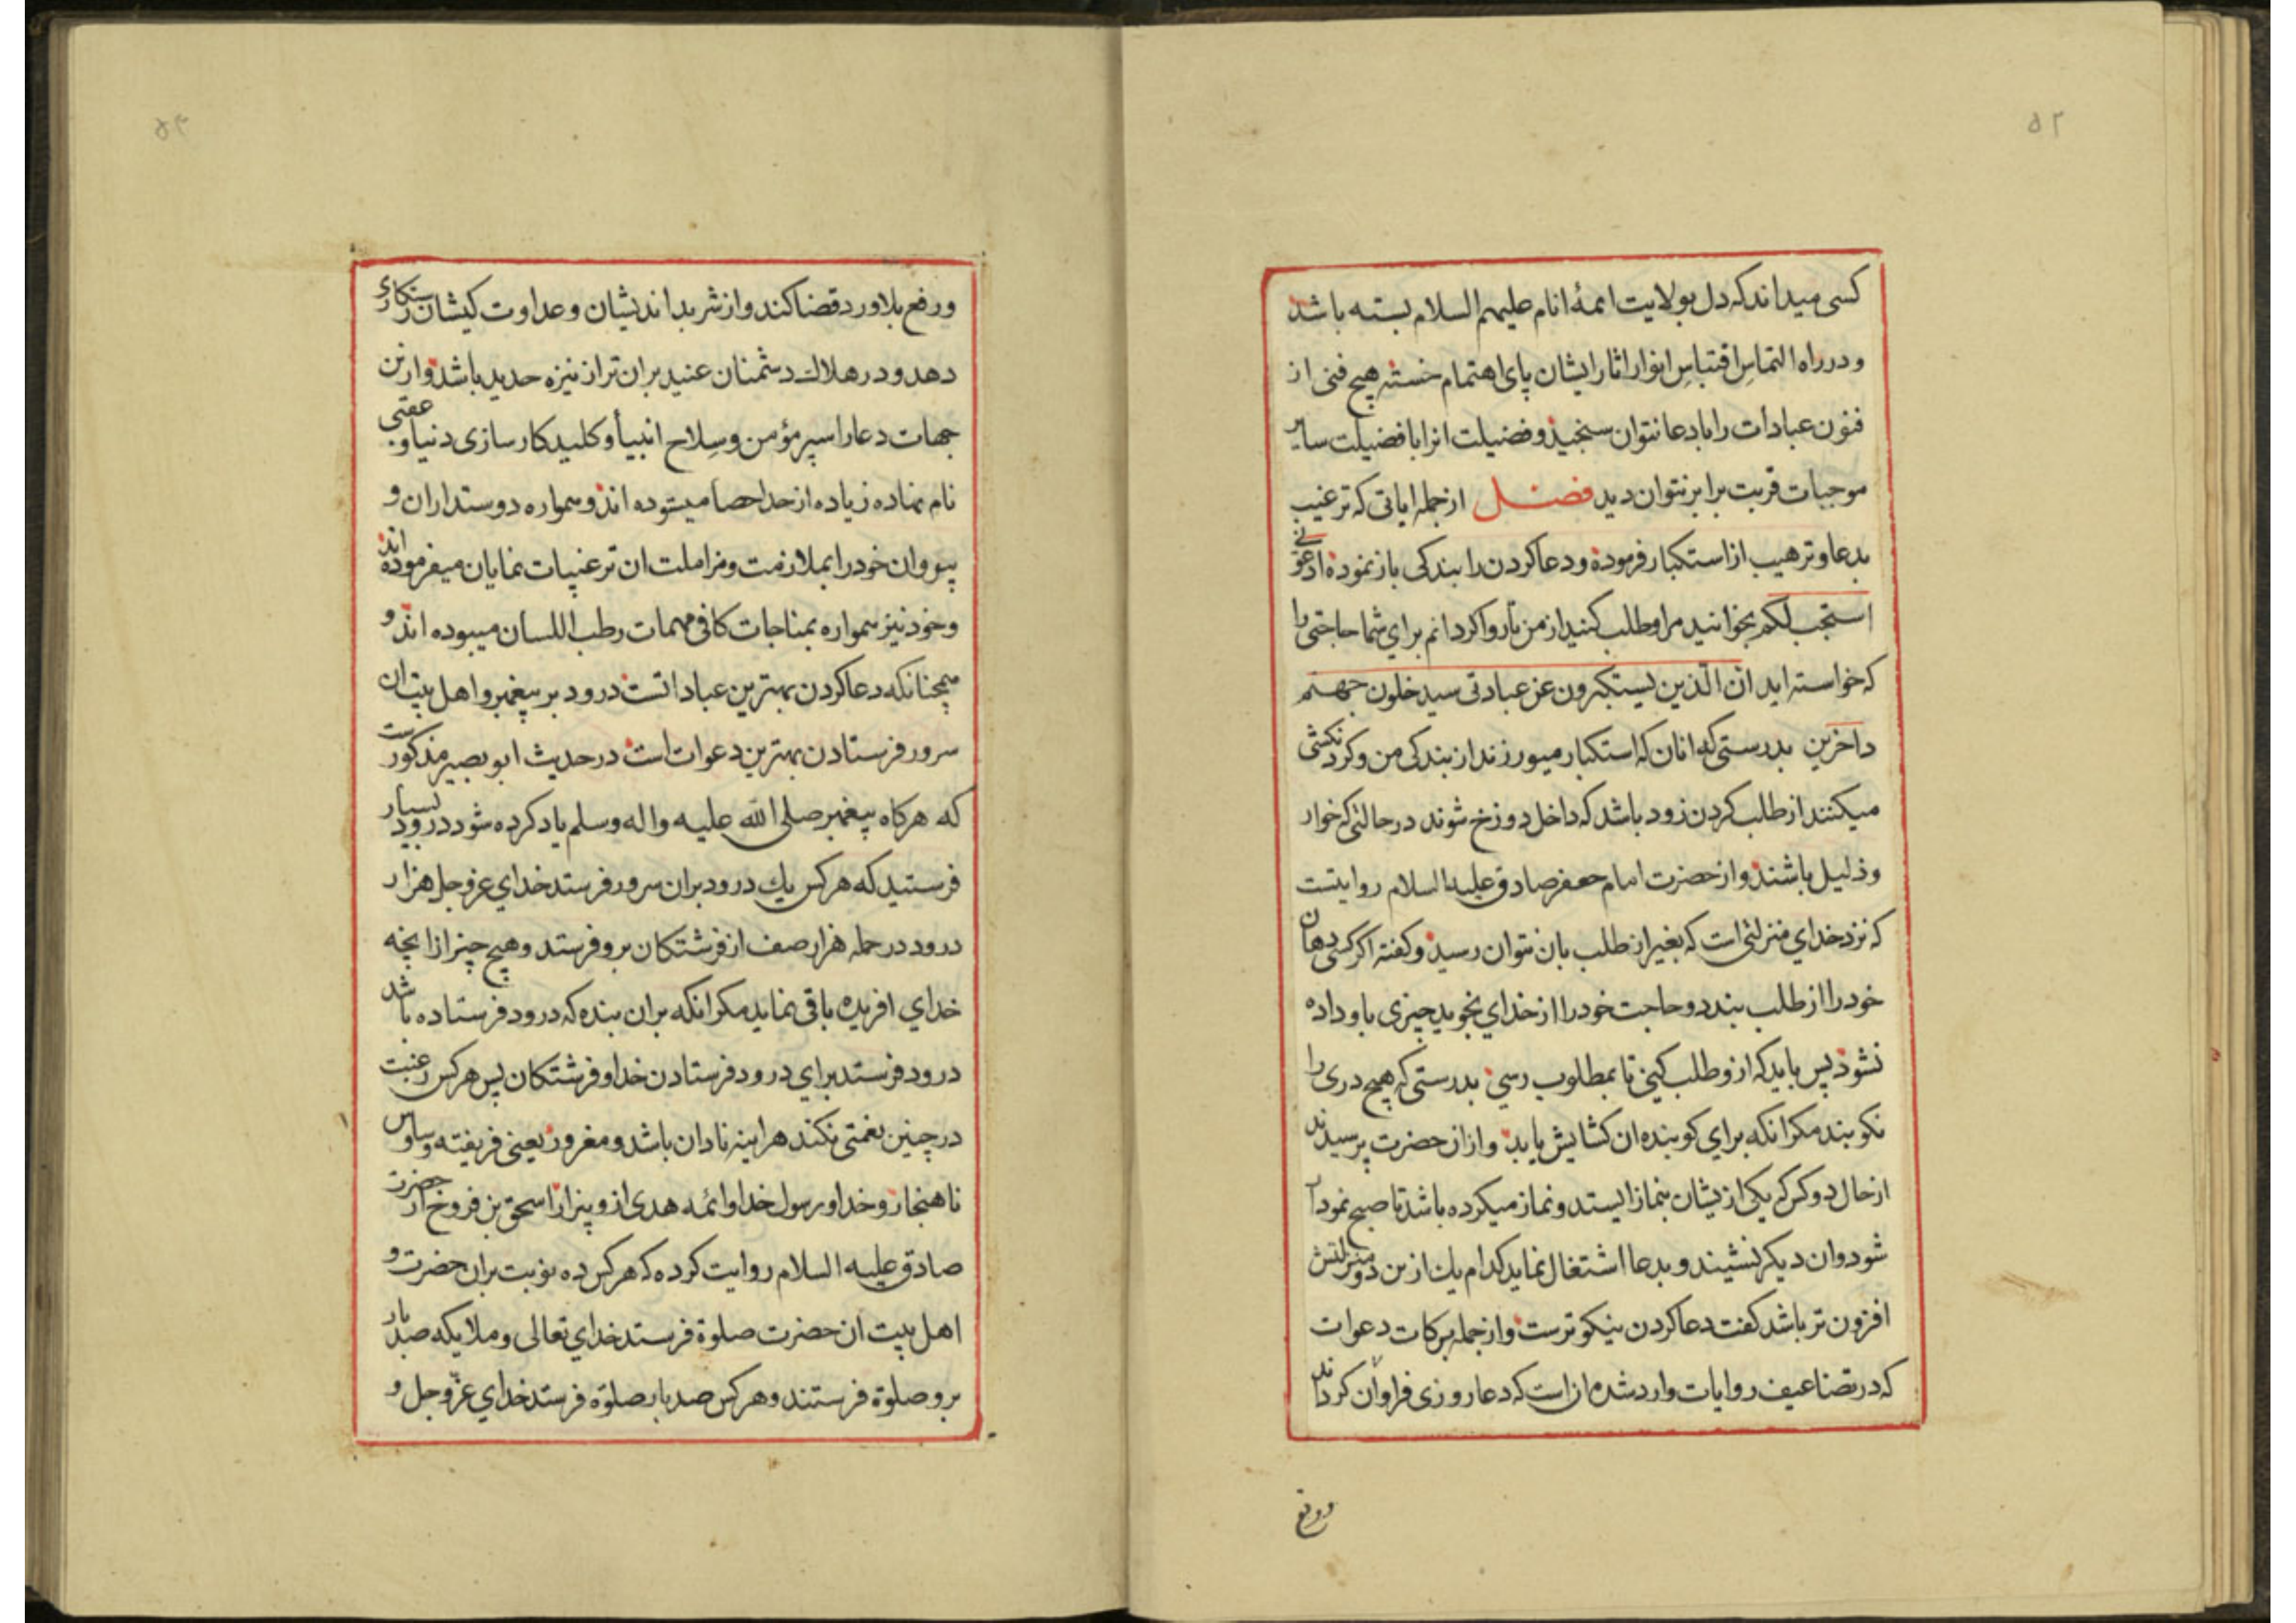 ۵۲
کسی میداند که دل بولایت ائمهٔ انام علیهم السلام بسته باشد
و در راه التماسِ اقتباسِ انوار اثار ایشان پای اهتمام خسته هیچ فنی از
فنون عبادات را با دعا نتوان سنجید و فضیلت انرا با فضیلت سایر
موجبات قربت برابر نتوان دید فصل از جمله ایاتی که ترغیب
بدعا و ترهیب از استکبار فرموده و دعا کردن را بندکی باز نموده ادعونی
استجب لکم بخوانید مرا و طلب کنید از من تا روا کردانم برای شما حاجتی را
که خواسته اید انّ الّذین یستکبرون عن عبادتی سیدخلون جهنم
داخرین بدرستی که انان که استکبار میورزند از بندکی من و کردنکشی
میکنند از طلب کردن زود باشد که داخل دوزخ شوند در حالتی که خوار
و ذلیل باشند و از حضرت امام جعفر صادق علیه السلام روایتست
که نزد خدای منزلتی است که بغیر از طلب بان نتوان رسید و کفته اکر کسی دهان
خود را از طلب ببندد و حاجت خود را از خدای نجوید چیزی باو داده
نشود پس باید که ازو طلب کنی تا بمطلوب رسی بدرستی که هیچ دری را
نکوبند مکر انکه برای کوبنده ان کشایش یابد و از ان حضرت پرسیدند
از حال دو کس که یکی ازیشان بنماز ایستد و نماز میکرده باشد تا صبح نمودار
شود و ان دیکر نشیند و بدعا اشتغال نماید کدام یك ازین دو منزلتش
افزون تر باشد کفت دعا کردن نیکوترست و از جمله برکات دعوات
که در تضاعیف روایات وارد شده ان است که دعا روزی فراوان کرداند
و رفع
۵۳
و رفع بلا و رد قضا کند و از شر بداندیشان و عداوت کیشان رستکاری
دهد و در هلاك دشمنان عنید بران تر از نیزه حدید باشد و ازین
جهات دعا را سپر مؤمن و سِلاح انبیأ و کلید کارسازی دنیا و عقبی
نام نهاده زیاده از حد احصا میستوده اند و همواره دوستداران و
پیروان خود را بملازمت و مزاملت ان ترغیبات نمایان میفرموده اند
و خود نیز همواره بمناجات کافی مهمات رطب اللسان میبوده اند و
همچنانکه دعا کردن بهترین عباداتست درود بر پیغمبر و اهل بیت ان
سرور فرستادن بهترین دعوات است در حدیث ابو بصیر مذکورست
که هرکاه پیغمبر صلی الله علیه واله وسلم یاد کرده شود درود بسیار
فرستید که هر کس یك درود بران سرور فرستد خدای عز وجل هزار
درود در جمله هزار صف از فرشتکان برو فرستد و هیچ چیز از انچه
خدای افریده باقی نماید مکر انکه بران بنده که درود فرستاده باشد
درود فرستد برای درود فرستادن خدا و فرشتکان پس هر کس رغبت
در چنین نعمتی نکند هر اینه نادان باشد و مغرور یعنی فریفته وساوس
ناهنجار و خدا و رسول خدا و ائمه هدی ازو بیزار اسحق بن فروخ از حضرت
صادق علیه السلام روایت کرده که هر کس ده نوبت بران حضرت و
اهل بیت ان حضرت صلوة فرستد خدای تعالی و ملایکه صد بار
برو صلوة فرستند و هر کس صد بار صلوة فرستد خدای عزّوجل و